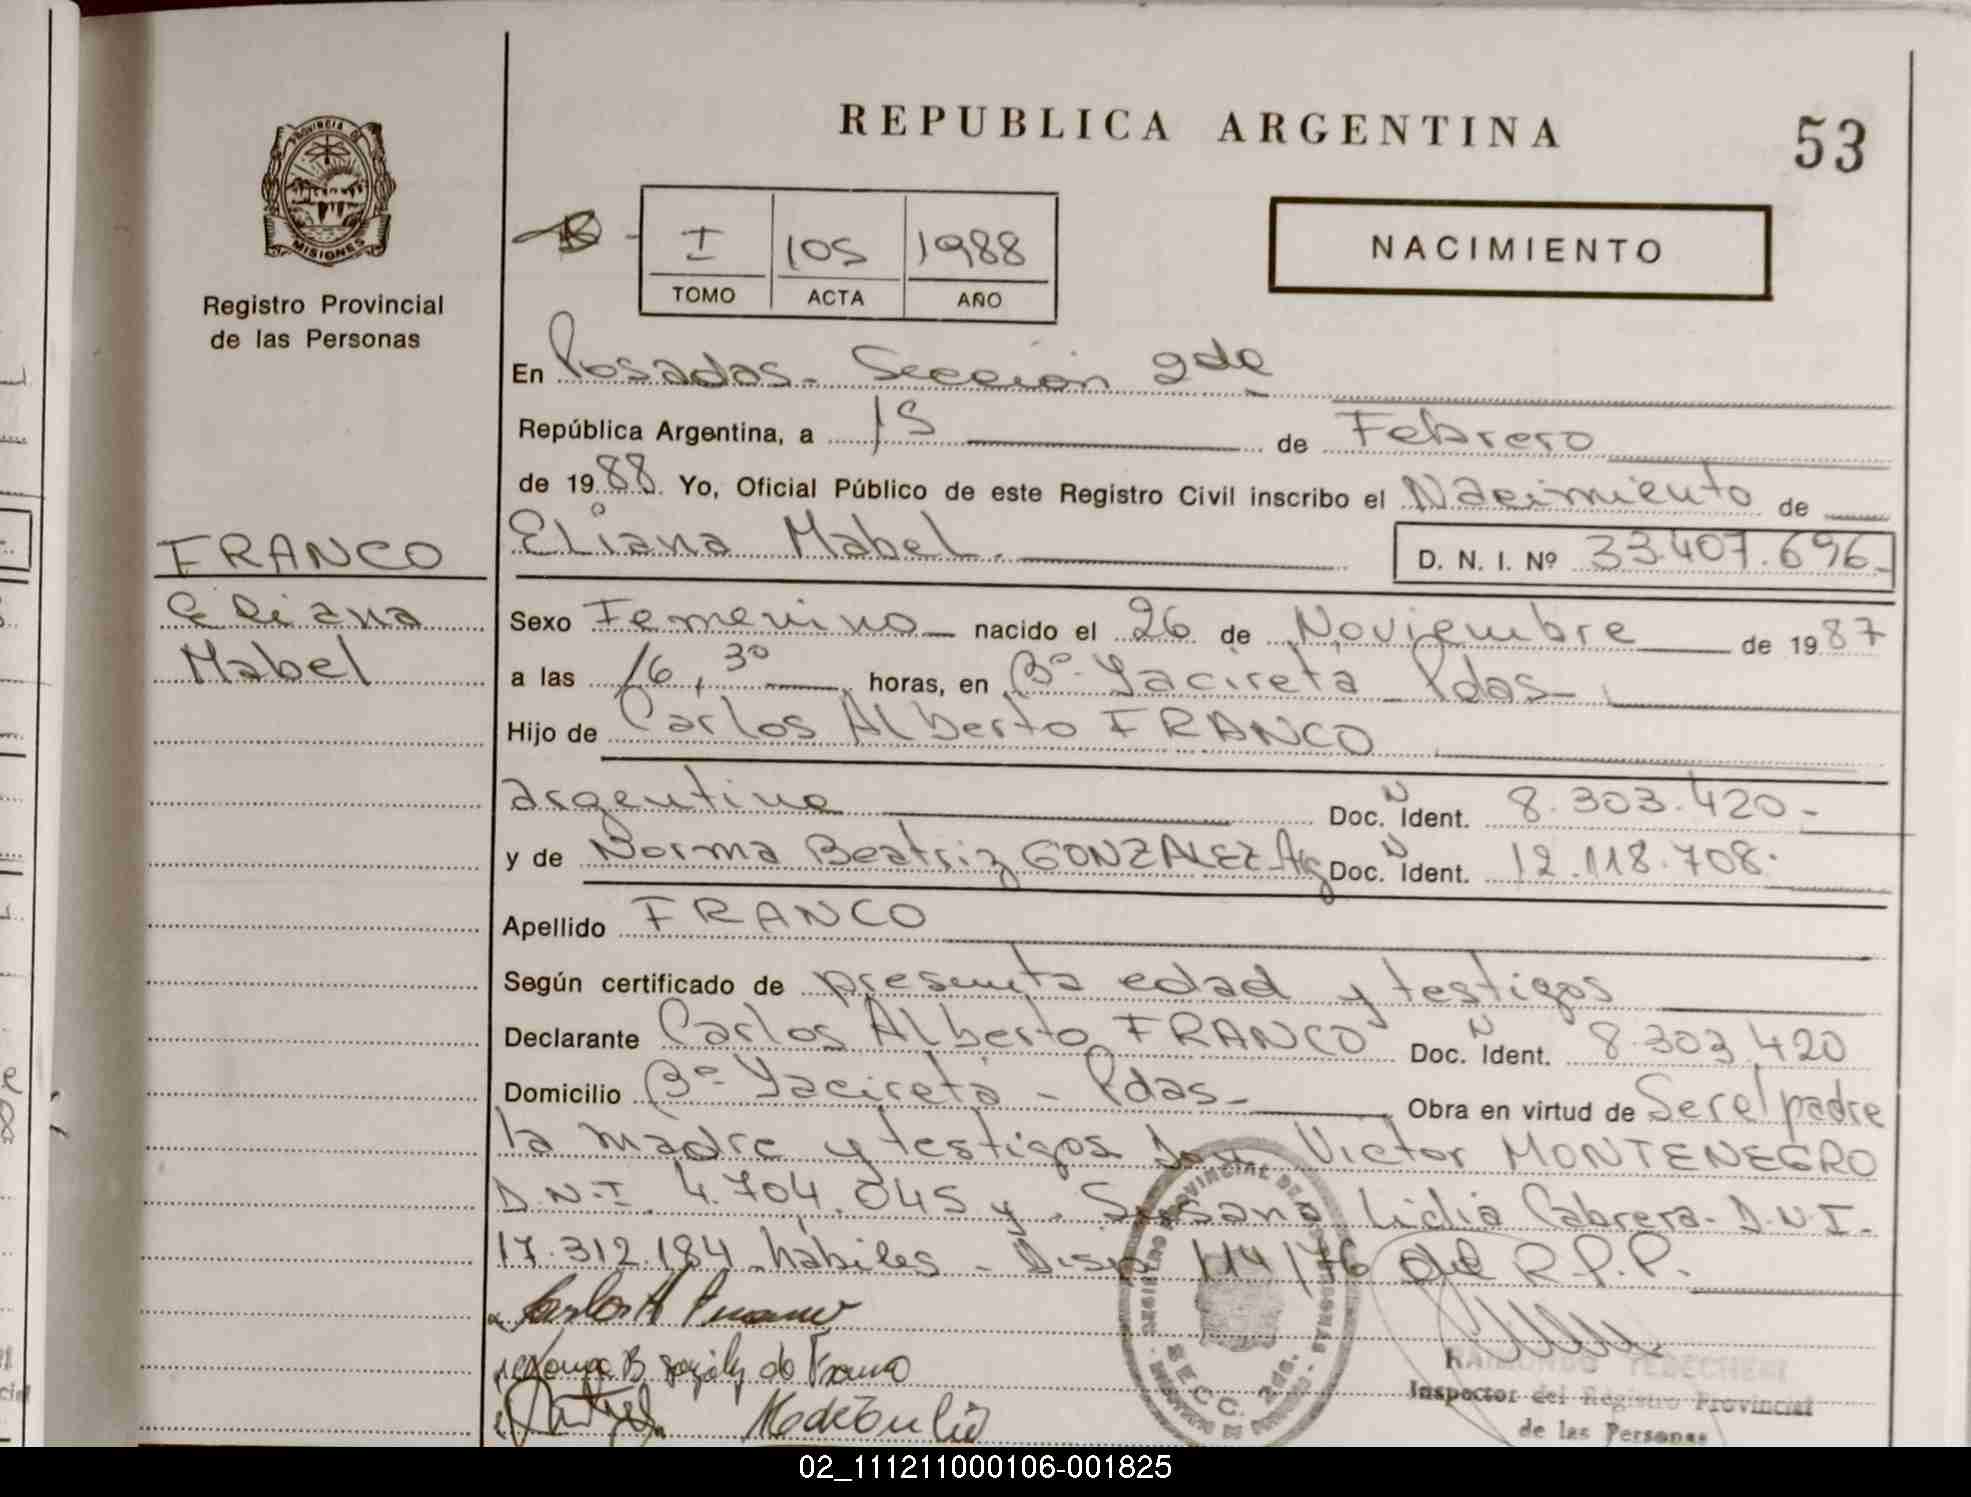 REPUBLICA ARGENTINA
53
PROVINCIA DE
MISIONES
Registro Provincial
de las Personas
I 105 1988
TOMO ACTA AÑO
NACIMIENTO
En Posadas - Sección 2da
República Argentina, a 15 de Febrero
de 1988. Yo, Oficial Público de este Registro Civil inscribo el Nacimiento de
FRANCO
Eliana
Mabel
Eliana Mabel. D. N. I. Nº 33.407.696-
Sexo Femenino nacido el 26 de Noviembre de 1987
a las 16,30 horas, en Bº Yacireta - Pdas -
Hijo de Carlos Alberto FRANCO
argentino Doc. N Ident. 8.303.420-
y de Norma Beatriz GONZALEZ Arg Doc. N Ident. 12.118.708.
Apellido FRANCO
Según certificado de presunta edad y testigos
Declarante Carlos Alberto FRANCO Doc. N Ident. 8.303.420
Domicilio Bº Yacireta - Pdas - Obra en virtud de Ser el padre
la madre y testigos Don Victor MONTENEGRO
D.N.I. 4.704.045 y Susana Lidia Cabrera - D.N.I.
17.312.184 - habiles - Disp. 114/76 del R.P.P.
SECC. 2da.
Inspector del Registro Provincial
de las Personas
02_111211000106-001825